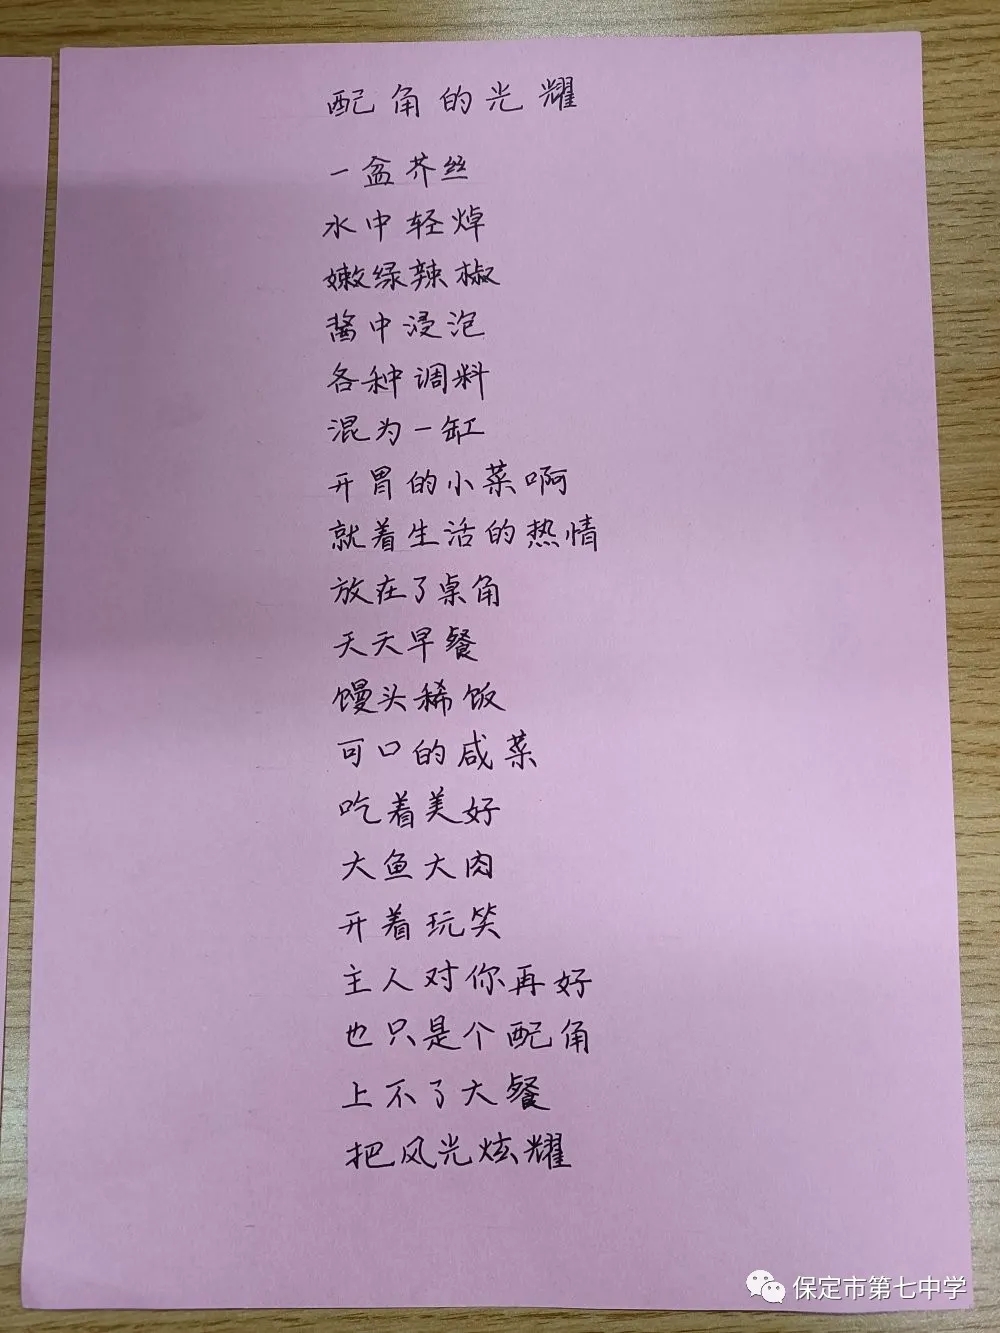 配角的光耀
一盆芥丝
水中轻焯
嫩绿辣椒
酱中浸泡
各种调料
混为一缸
开胃的小菜啊
就着生活的热情
放在了桌角
天天早餐
馒头稀饭
可口的咸菜
吃着美好
大鱼大肉
开着玩笑
主人对你再好
也只是个配角
上不了大餐
把风光炫耀
保定市第七中学